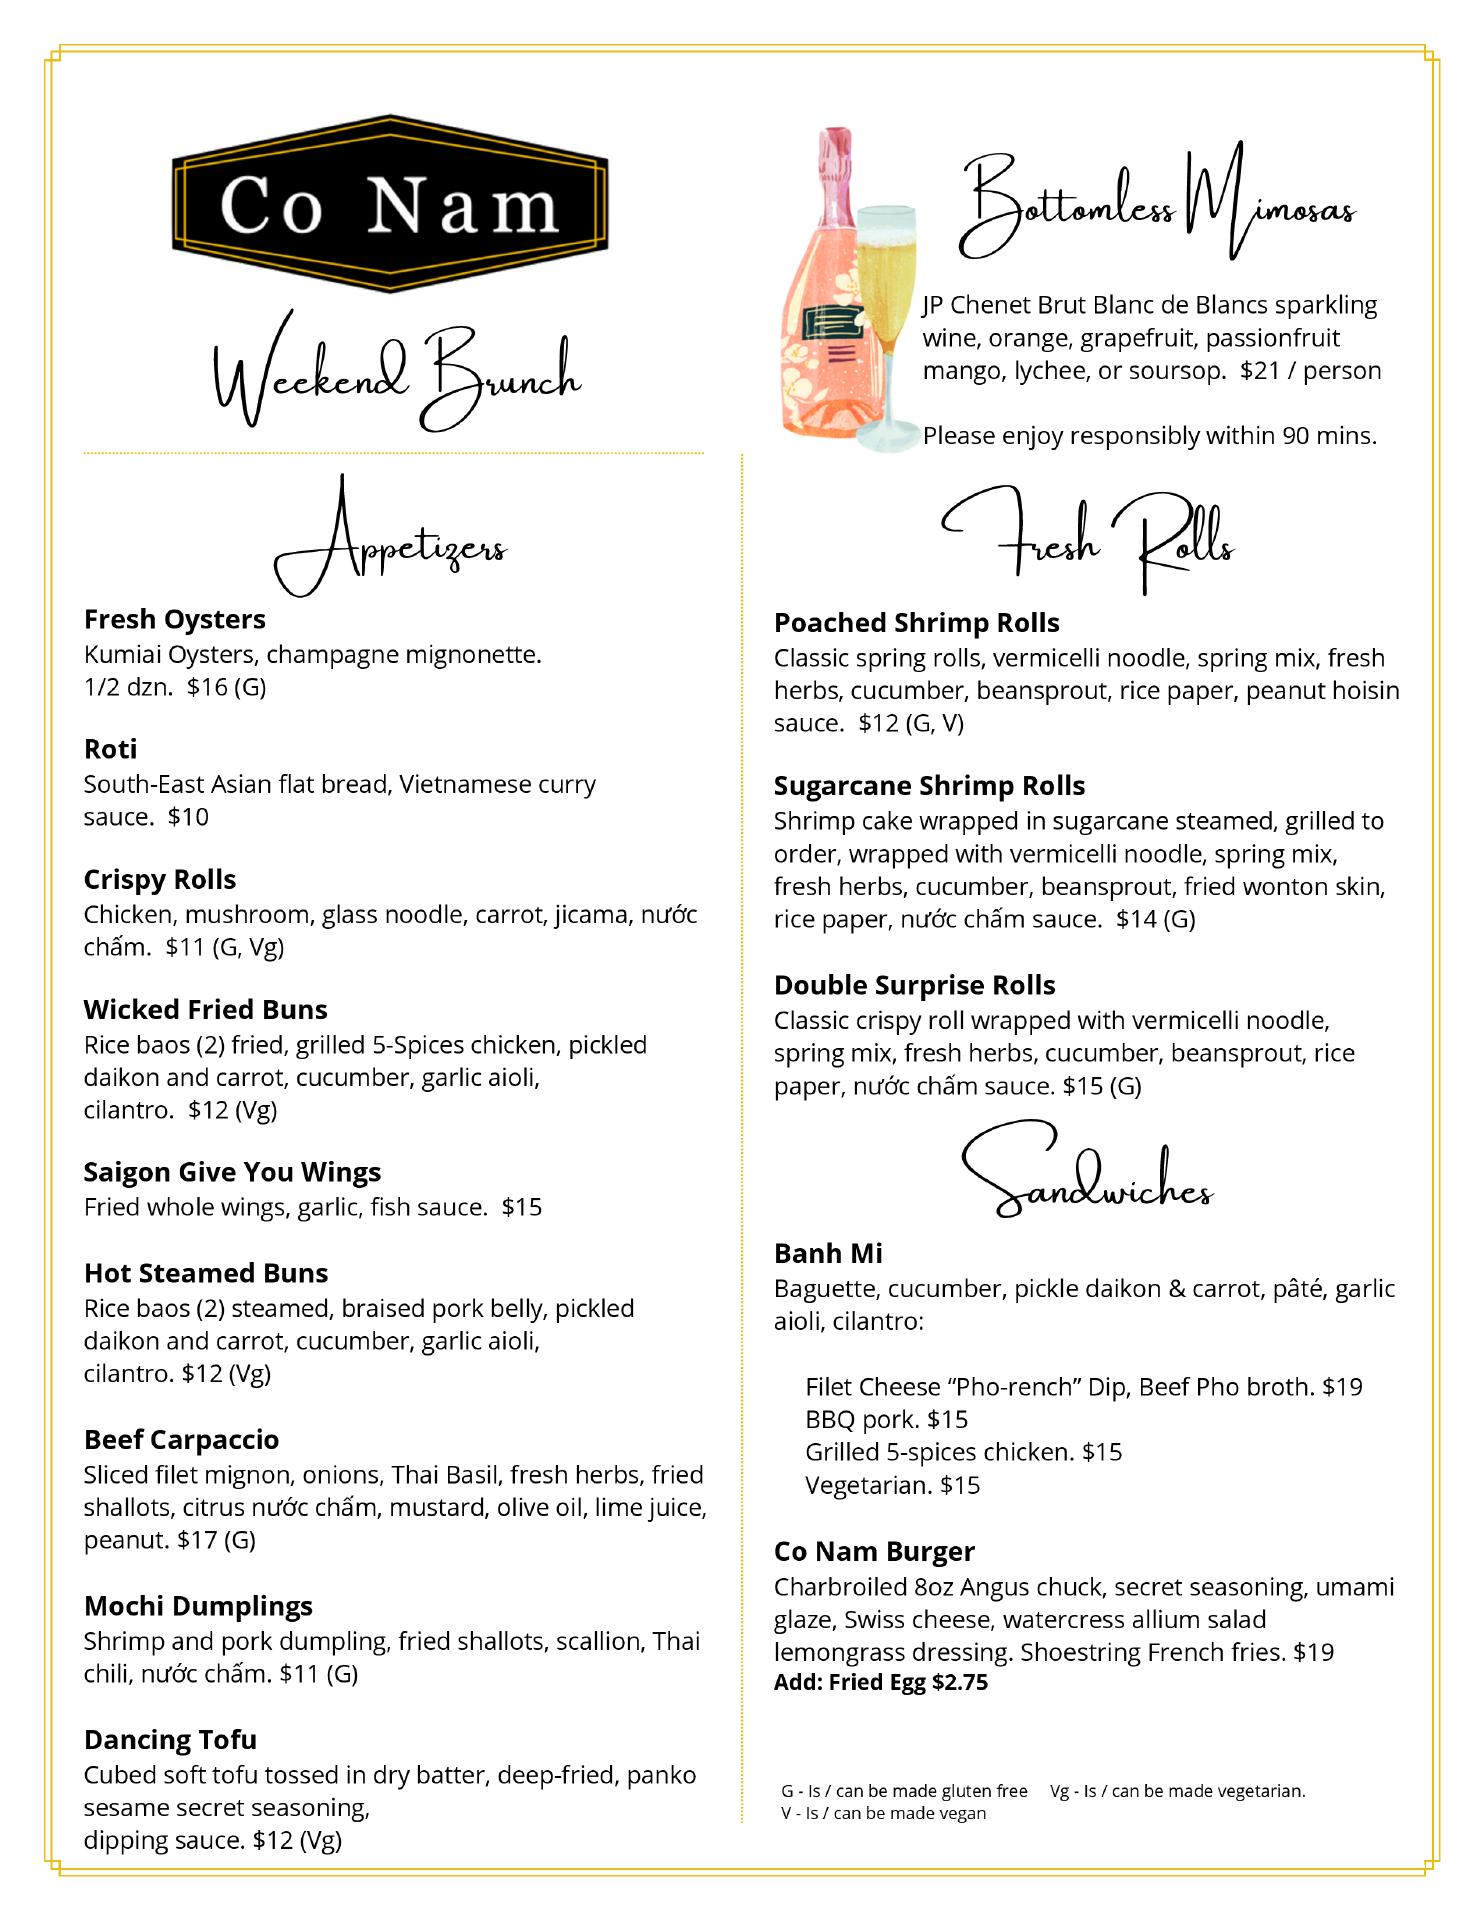 Co Nam
Weekend Brunch
Bottomless Mimosas
JP Chenet Brut Blanc de Blancs sparkling
wine, orange, grapefruit, passionfruit
mango, lychee, or soursop.  $21 / person
Please enjoy responsibly within 90 mins.
Appetizers
Fresh Oysters
Kumiai Oysters, champagne mignonette.
1/2 dzn.  $16 (G)
Roti
South-East Asian flat bread, Vietnamese curry
sauce.  $10
Crispy Rolls
Chicken, mushroom, glass noodle, carrot, jicama, nước
chấm.  $11 (G, Vg)
Wicked Fried Buns
Rice baos (2) fried, grilled 5-Spices chicken, pickled
daikon and carrot, cucumber, garlic aioli,
cilantro.  $12 (Vg)
Saigon Give You Wings
Fried whole wings, garlic, fish sauce.  $15
Hot Steamed Buns
Rice baos (2) steamed, braised pork belly, pickled
daikon and carrot, cucumber, garlic aioli,
cilantro. $12 (Vg)
Beef Carpaccio
Sliced filet mignon, onions, Thai Basil, fresh herbs, fried
shallots, citrus nước chấm, mustard, olive oil, lime juice,
peanut. $17 (G)
Mochi Dumplings
Shrimp and pork dumpling, fried shallots, scallion, Thai
chili, nước chấm. $11 (G)
Dancing Tofu
Cubed soft tofu tossed in dry batter, deep-fried, panko
sesame secret seasoning,
dipping sauce. $12 (Vg)
Fresh Rolls
Poached Shrimp Rolls
Classic spring rolls, vermicelli noodle, spring mix, fresh
herbs, cucumber, beansprout, rice paper, peanut hoisin
sauce.  $12 (G, V)
Sugarcane Shrimp Rolls
Shrimp cake wrapped in sugarcane steamed, grilled to
order, wrapped with vermicelli noodle, spring mix,
fresh herbs, cucumber, beansprout, fried wonton skin,
rice paper, nước chấm sauce.  $14 (G)
Double Surprise Rolls
Classic crispy roll wrapped with vermicelli noodle,
spring mix, fresh herbs, cucumber, beansprout, rice
paper, nước chấm sauce. $15 (G)
Sandwiches
Banh Mi
Baguette, cucumber, pickle daikon & carrot, pâté, garlic
aioli, cilantro:
Filet Cheese “Pho-rench” Dip, Beef Pho broth. $19
BBQ pork. $15
Grilled 5-spices chicken. $15
Vegetarian. $15
Co Nam Burger
Charbroiled 8oz Angus chuck, secret seasoning, umami
glaze, Swiss cheese, watercress allium salad
lemongrass dressing. Shoestring French fries. $19
Add: Fried Egg $2.75
G - Is / can be made gluten free    Vg - Is / can be made vegetarian.
V - Is / can be made vegan